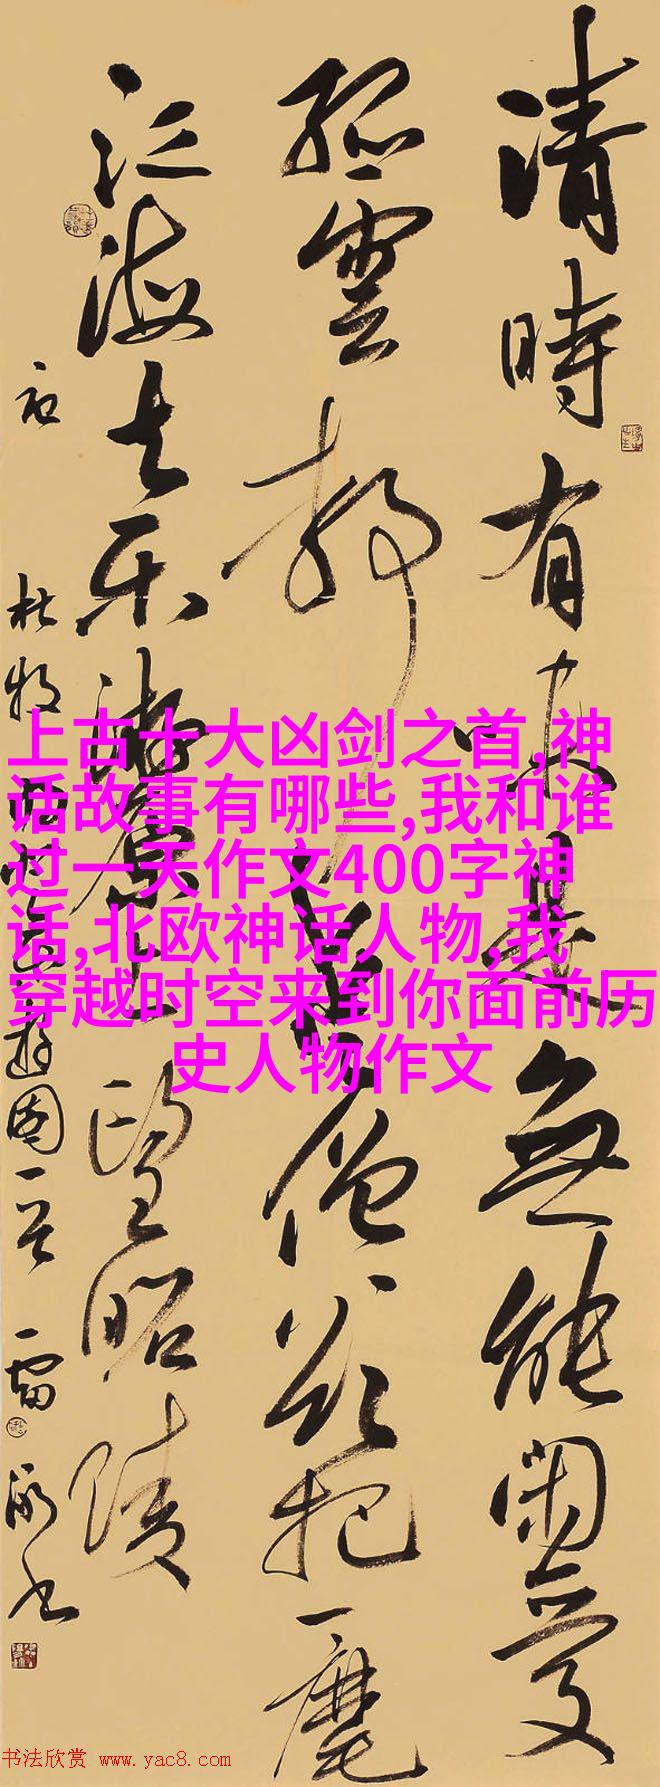 清時有味是無能閑愛
孤雲静愛僧欲把一麾
江海去乐游原上望昭陵
杜牧
上古十大凶剑之首,神
话故事有哪些,我和谁
过一天作文400字神
话,北欧神话人物,我
穿越时空来到你面前历
史人物作文
书法欣赏 www.yac8.com